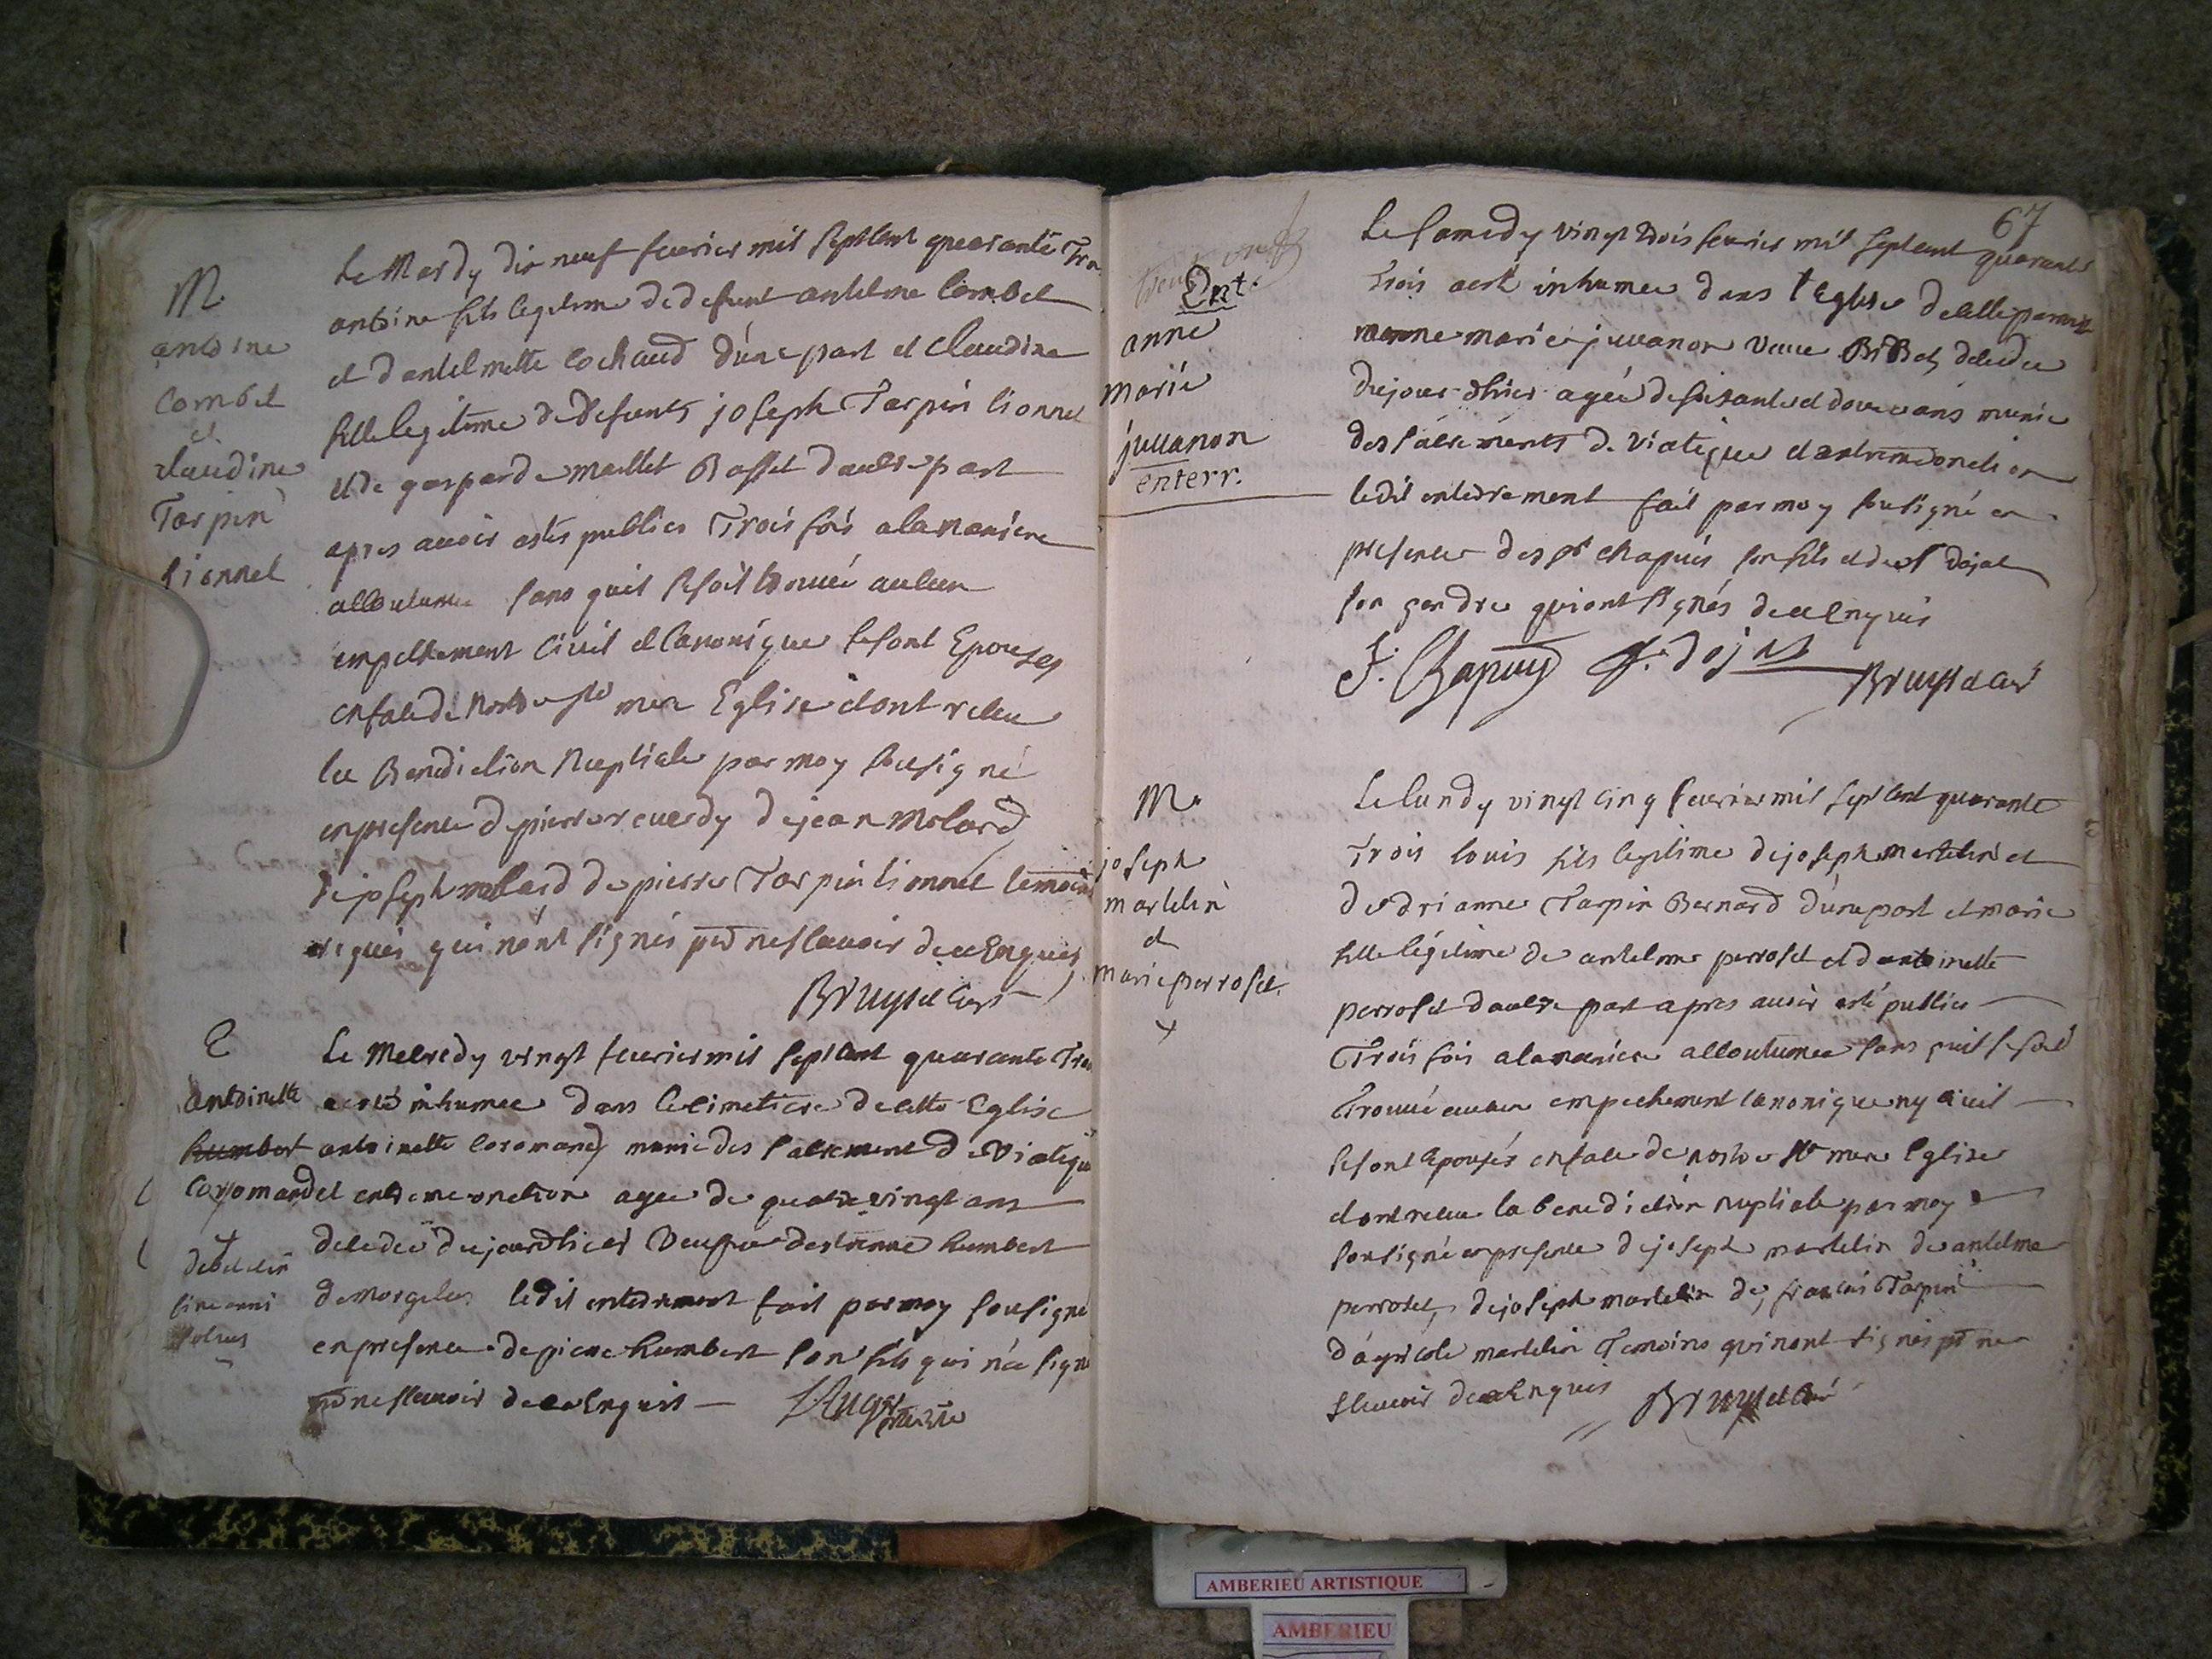 M
antoine
Combet
et
claudine
Tarpin
Lionnel
Le Mardy dix neuf feurier mil sept Cent quarante Tro
antoine fils legitime de defunt antelme Combet
et dantelmette Cochaud d'une part et Claudine
fille legitime de defunts joseph Tarpin lionnel
et de gasparde maillet Basset daultre part
apres auoir estés publies Trois fois a la maniere
accoutumee sans quil se soit trouué aulcun
empechement Ciuil et Canonique se sont Epousés
en face de nostre ste mere Eglise et ont receu
la Benediction Nuptiale par moy sousigné
en presence de pierre reuerdy de jean Molard
de joseph molard de pierre Tarpin lionnel temoins
requis qui n'ont signés pr ne scauoir de ce Enquis
Bruyset Curé
E
antoinette
humbert
Coromandel
Le Mecredy vingt feurier mil sept Cent quarante Tro
a esté inhumee dans le cimetiere de cette Eglise
antoinette Coromand munie des sacrement de Viatique
et extreme onction agee de quatre vingt ans
decedee du jour d'hier Veufue destienne humbert
de Morgelas ledit enterrement fait par moy sousigné
en presence de pierre humbert son fils qui n'a signé
pr ne scauoir de ce Enquis
67
Ent.
anne
marie
juuanon
enterr.
Le samedy vingt trois feurier mil sept cent quarante
Trois a esté inhumee dans l'Eglise de cette paroisse
anne marie juuanon veuue BiBet decedee
du jour d'hier agée de soixante et douze ans munie
des sacrements de Viatique et extreme onction
ledit enterrement fait par moy sousigné en
presence des sr chapuis son fils et de sr dojat
son gendre qui ont signés de ce enquis
F. Chapuy dojat
Bruyset Curé
M.
joseph
martelin
et
marie perroset
Le lundy vingt cinq feurier mil sept Cent quarante
Trois louis fils legitime de joseph martelin et
de drianne Tarpin Bernard d'une part et marie
fille légitime de antelme perroset et dantoinette
perroset daultre part apres auoir esté publies
Trois fois a la maniere accoutumee sans quil se soit
Trouué aucun empechement canonique ny ciuil
se sont epousés en face de nostre ste mere Eglise
et ont receu la benediction nuptiale par moy
sousigné en presence de joseph martelin de antelme
perroset, de joseph martelin de francois Tarpin
d'agricole martelin Temoins qui n'ont signés pr ne
scauoir de ce Enquis Bruyset Curé
AMBERIEU ARTISTIQUE
AMBERIEU